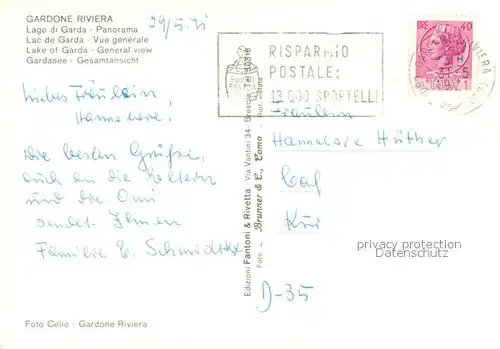 GARDONE RIVIERA
Lago di Garda - Panorama
Lac de Garda - Vue générale
Lake of Garda - General view
Gardasee - Gesamtansicht
29/5.71
Liebes Fräulein
Hannelore!
Die besten Grüße,
auch an die Eltern
und die Omi
sendet Ihnen
Familie E.
RISPARMIO
POSTALE:
13 000 SPORTELLI
40
Edizioni Fantoni & Rivetta - Via Vantini 34 - Brescia
Foto - Brunner & C., Como - Ripr. vietata
Fräulein
Hannelore Hüther
Kür
D-35
privacy protection
Datenschutz
Foto Celio - Gardone Riviera